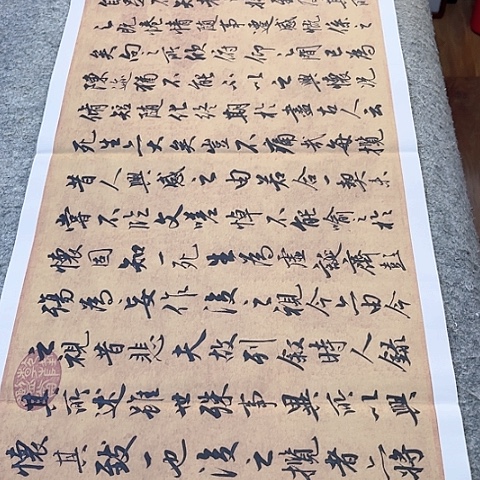 不知老
之既惓情隨事遷感慨係之
矣向之所欣俛仰之間已為
陳迹猶不能不以之興懷況
脩短隨化終期於盡古人云
死生亦大矣豈不痛哉每攬
昔人興感之由若合一契未
嘗不臨文嗟悼不能喻之於
懷固知一死生為虛誕齊彭
殤為妄作後之視今亦由今
之視昔悲夫故列叙時人錄
其所述雖世殊事異所以興
懷其致一也後之攬者亦將